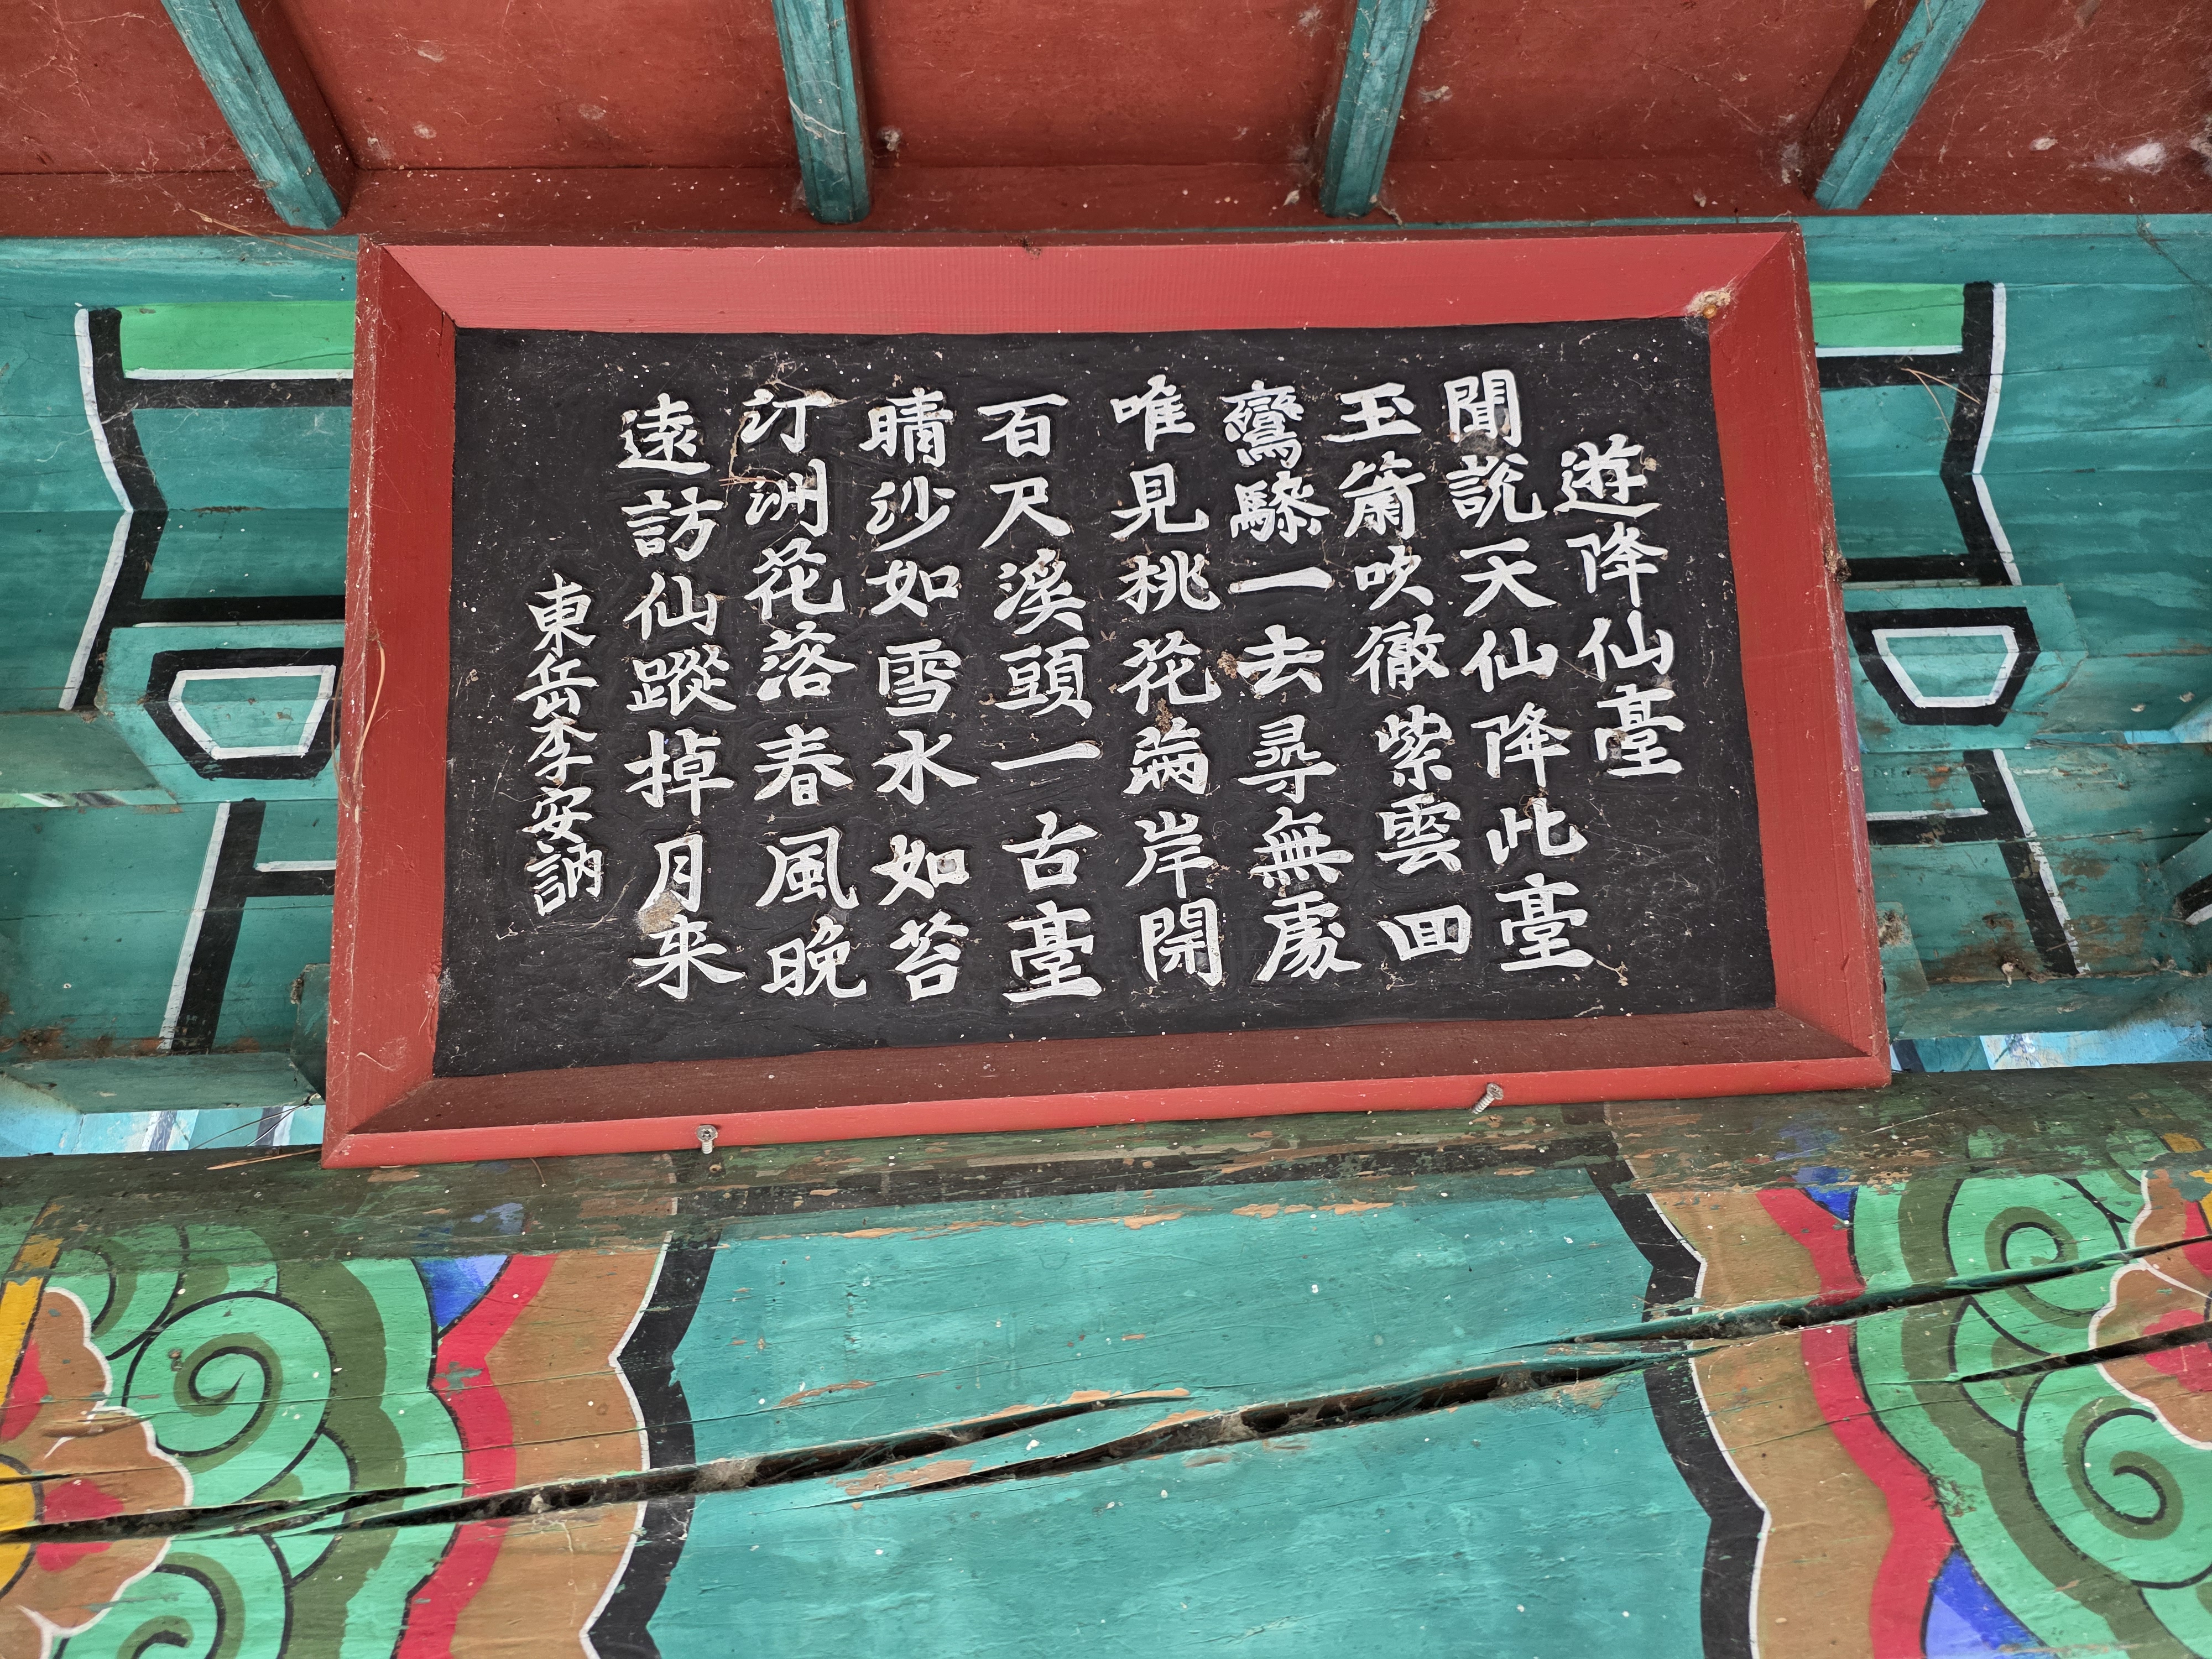 遊降仙臺
聞說天仙降此臺
玉簫吹徹紫雲回
鸞驂一去尋無處
唯見桃花滿岸開
百尺溪頭一古臺
晴沙如雪水如苔
汀洲花落春風晚
遠訪仙蹤掉月來
東岳李安訥